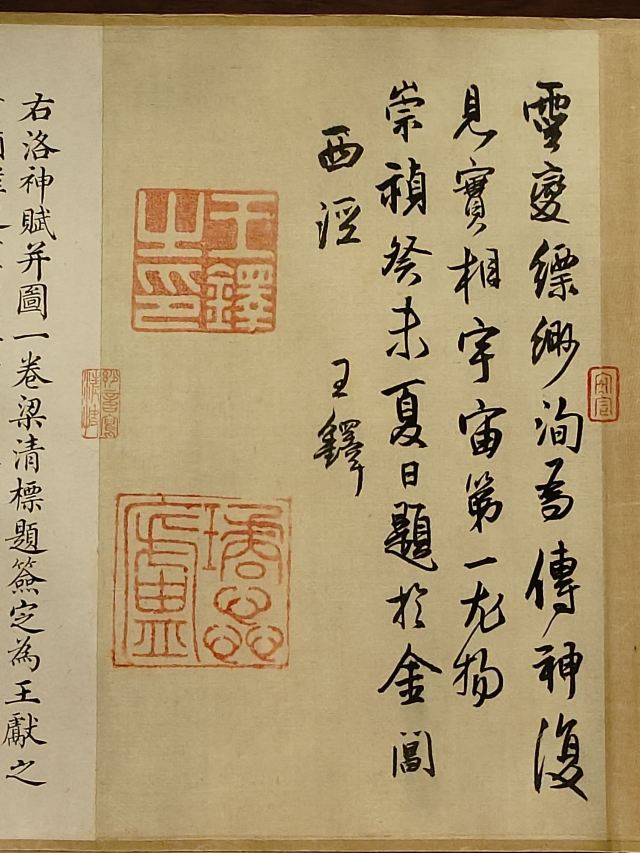 靈變縹緲洵為傳神復
見實相宇宙第一尤物
崇禎癸未夏日題於金閶
西涇　王鐸
王鐸之印
右洛神賦并圖一卷梁清標題簽定為王獻之